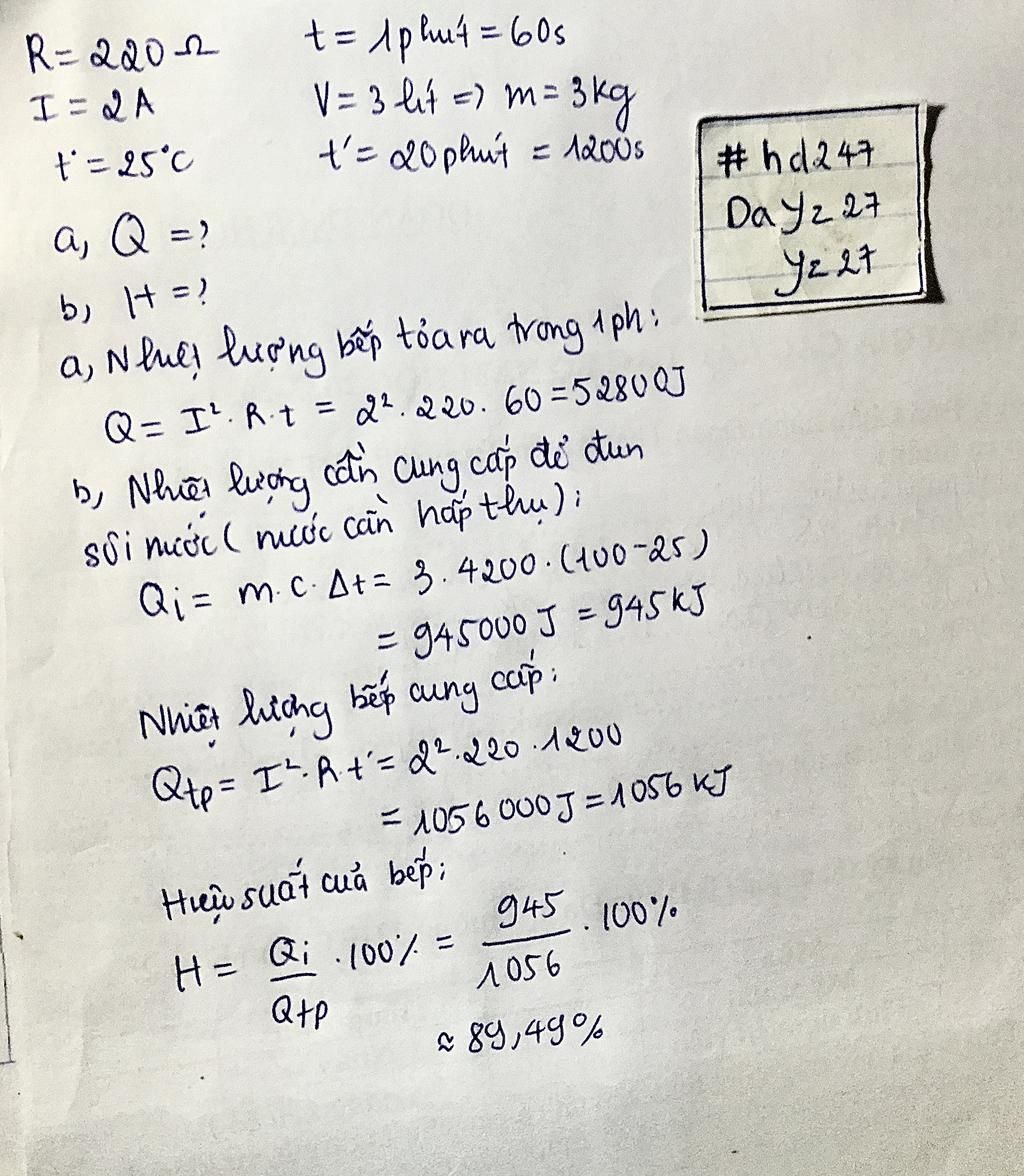 R = 220 Ω
t = 1 phút = 60s
I = 2A
V = 3 lít => m = 3kg
t° = 25°C
t' = 20 phút = 1200s
#hd247
DaYz27
Yz27
a, Q = ?
b, H = ?
a, Nhiệt lượng bếp tỏa ra trong 1ph:
Q = I². R. t = 2². 220. 60 = 52800J
b, Nhiệt lượng cần cung cấp để đun
sôi nước (nước cần hấp thụ):
Qi = m. c. Δt = 3. 4200. (100-25)
= 945000J = 945kJ
Nhiệt lượng bếp cung cấp:
Qtp = I². R. t' = 2². 220. 1200
= 1056000J = 1056 kJ
Hiệu suất của bếp:
H = Qi/Qtp . 100% = 945/1056 . 100%
≈ 89,49%